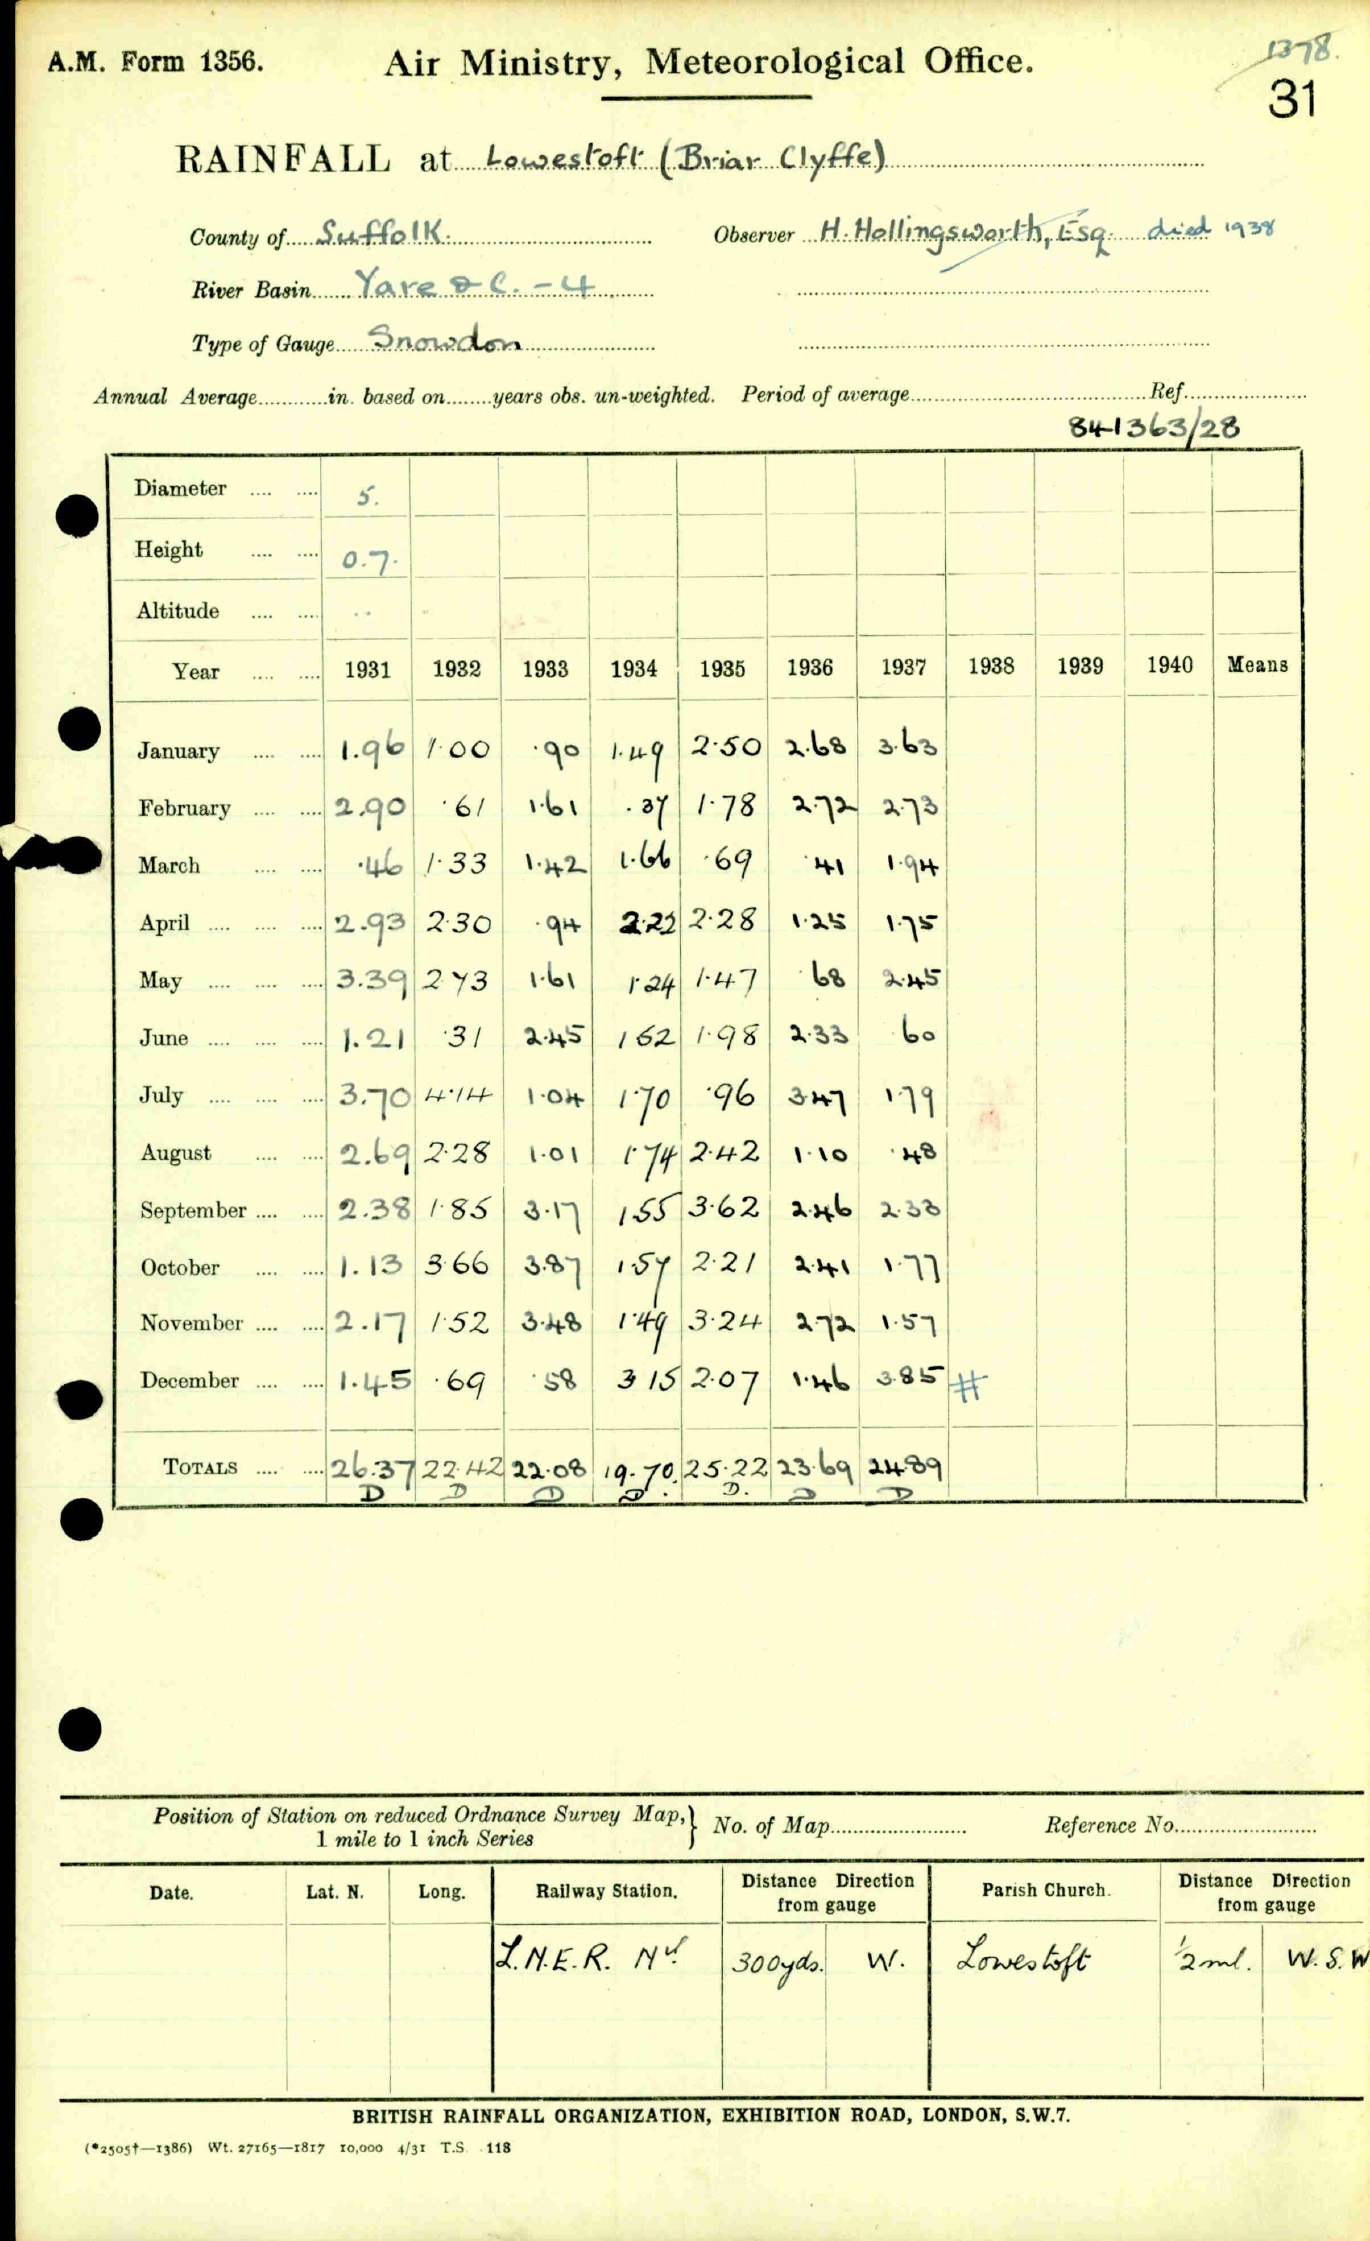 A.M. Form 1356.
Air Ministry, Meteorological Office.
1378.
31
RAINFALL at Lowestoft (Briar Clyffe)
County of Suffolk. Observer H. Hollingsworth, Esq. died 1938
River Basin Yare &C. - 4
Type of Gauge Snowdon
Annual Average in. based on years obs. un-weighted. Period of average Ref.
841363/28
Diameter 5.
Height 0.7.
Altitude ..
Year 1931 1932 1933 1934 1935 1936 1937 1938 1939 1940 Means
January 1.96 1.00 .90 1.49 2.50 2.68 3.63
February 2.90 .61 1.61 .37 1.78 2.72 2.73
March .46 1.33 1.42 1.66 .69 .41 1.94
April 2.93 2.30 .94 2.22 2.28 1.25 1.75
May 3.39 2.73 1.61 1.24 1.47 .68 2.45
June 1.21 .31 2.45 1.52 1.98 2.33 .60
July 3.70 4.14 1.04 1.70 .96 3.47 1.79
August 2.69 2.28 1.01 1.74 2.42 1.10 .48
September 2.38 1.85 3.17 1.55 3.62 2.46 2.33
October 1.13 3.66 3.87 1.57 2.21 2.41 1.77
November 2.17 1.52 3.48 1.49 3.24 2.72 1.57
December 1.45 .69 .58 3.15 2.07 1.46 3.85 #
TOTALS 26.37 22.42 22.08 19.70 25.22 23.69 24.89
D D D D. D. D D
Position of Station on reduced Ordnance Survey Map, } No. of Map Reference No.
1 mile to 1 inch Series
Date. Lat. N. Long. Railway Station. Distance Direction from gauge Parish Church. Distance Direction from gauge
L.N.E.R. Nth 300yds. W. Lowestoft ½ ml. W.S.W
BRITISH RAINFALL ORGANIZATION, EXHIBITION ROAD, LONDON, S.W.7.
(*2505†—1386) Wt. 27165—1817 10,000 4/31 T.S. 118